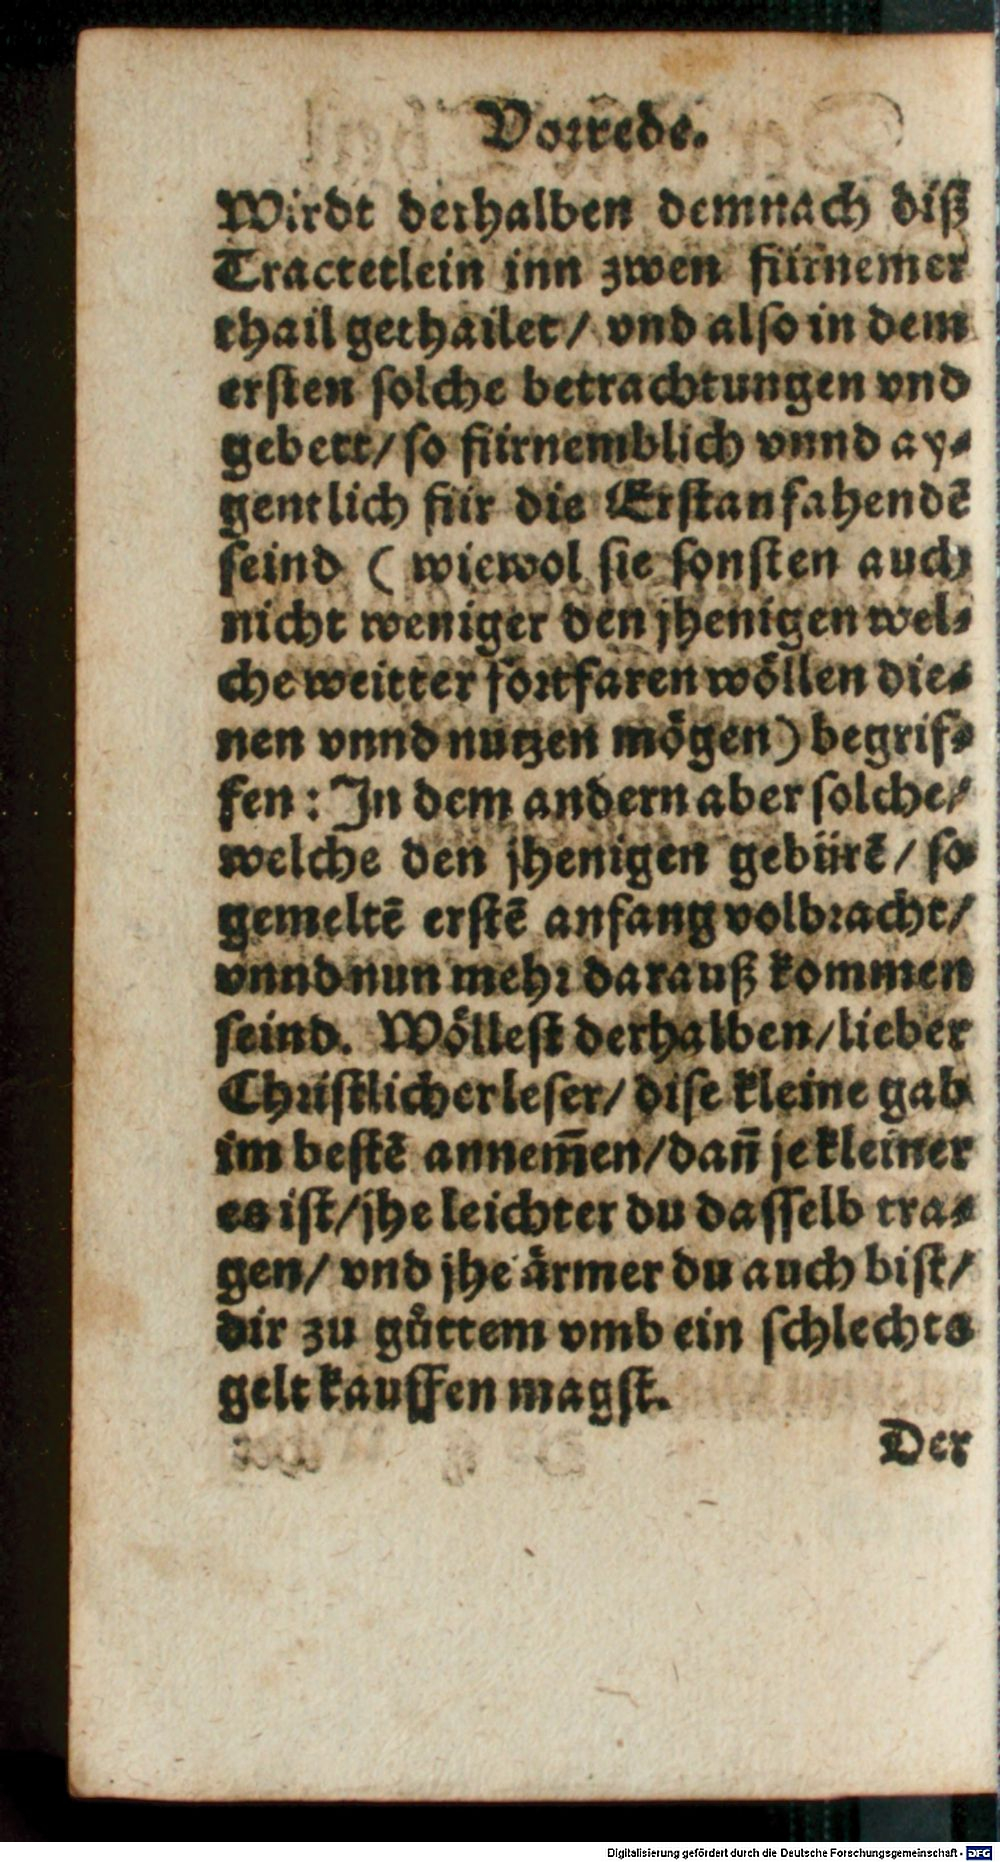 Vorrede.
Wirdt derhalben demnach diß
Tractetlein inn zwen fürnemer
thail gethailet/ vnd also in dem
ersten solche betrachtungen vnd
gebett/ so fürnemblich vnnd ay⸗
gentlich für die Erstanfahendē
seind ( wiewol sie sonsten auch
nicht weniger den jhenigen wel⸗
che weitter fortfaren wöllen die⸗
nen vnnd nutzen mögen) begrif⸗
fen: In dem andern aber solche/
welche den jhenigen gebürē/ so
gemeltē erstē anfang volbracht/
vnnd nun mehr darauß kommen
seind. Wöllest derhalben/ lieber
Christlicher leser/ dise kleine gab
im bestē annem̄en/ dan̄ je kleiner
es ist/ jhe leichter du dasselb tra⸗
gen/ vnd jhe ärmer du auch bist/
dir zu gůttem vmb ein schlechts
gelt kauffen magst.
Der
Digitalisierung gefördert durch die Deutsche Forschungsgemeinschaft - DFG